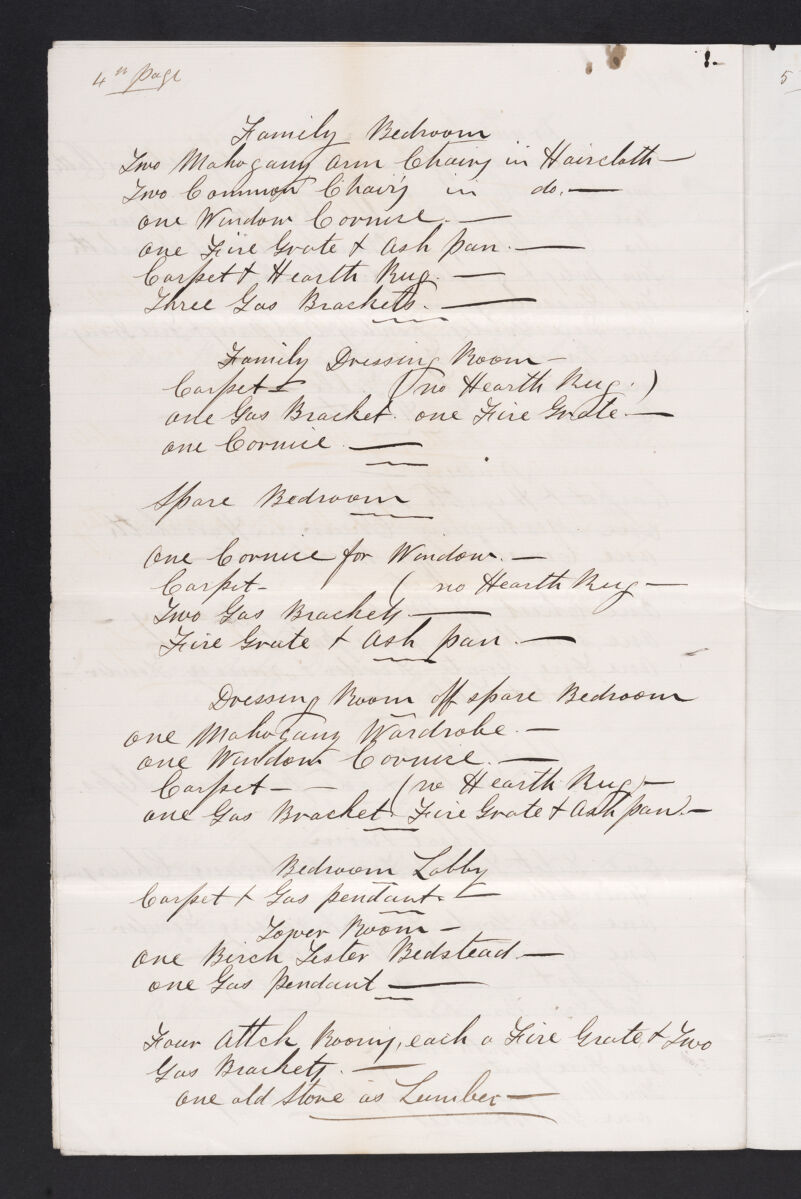 4th page
5
Family Bedroom
Two Mahogany Arm Chairs in Haircloth —
Two Common Chairs in do. —
one Window Cornice. —
one Fire Grate & Ash pan. —
Carpet & Hearth Rug. —
Three Gas Brackets. —
Family Dressing Room —
Carpet — (no Hearth Rug.)
one Gas Bracket. one Fire Grate —
one Cornice —
Spare Bedroom
One Cornice for Window. —
Carpet — ( no Hearth Rug —
Two Gas Brackets —
Fire Grate & Ash pan. —
Dressing Room off spare Bedroom
one Mahogany Wardrobe. —
one Window Cornice. —
Carpet — — (no Hearth Rug) —
one Gas Bracket. Fire Grate & Ash pan. —
Bedroom Lobby
Carpet & Gas pendant. —
Tower Room —
one Birch Tester Bedstead. —
one Gas Pendant —
Four Attck Rooms, each a Fire Grate & Two
Gas Brackets. —
one old Stove as Lumber —